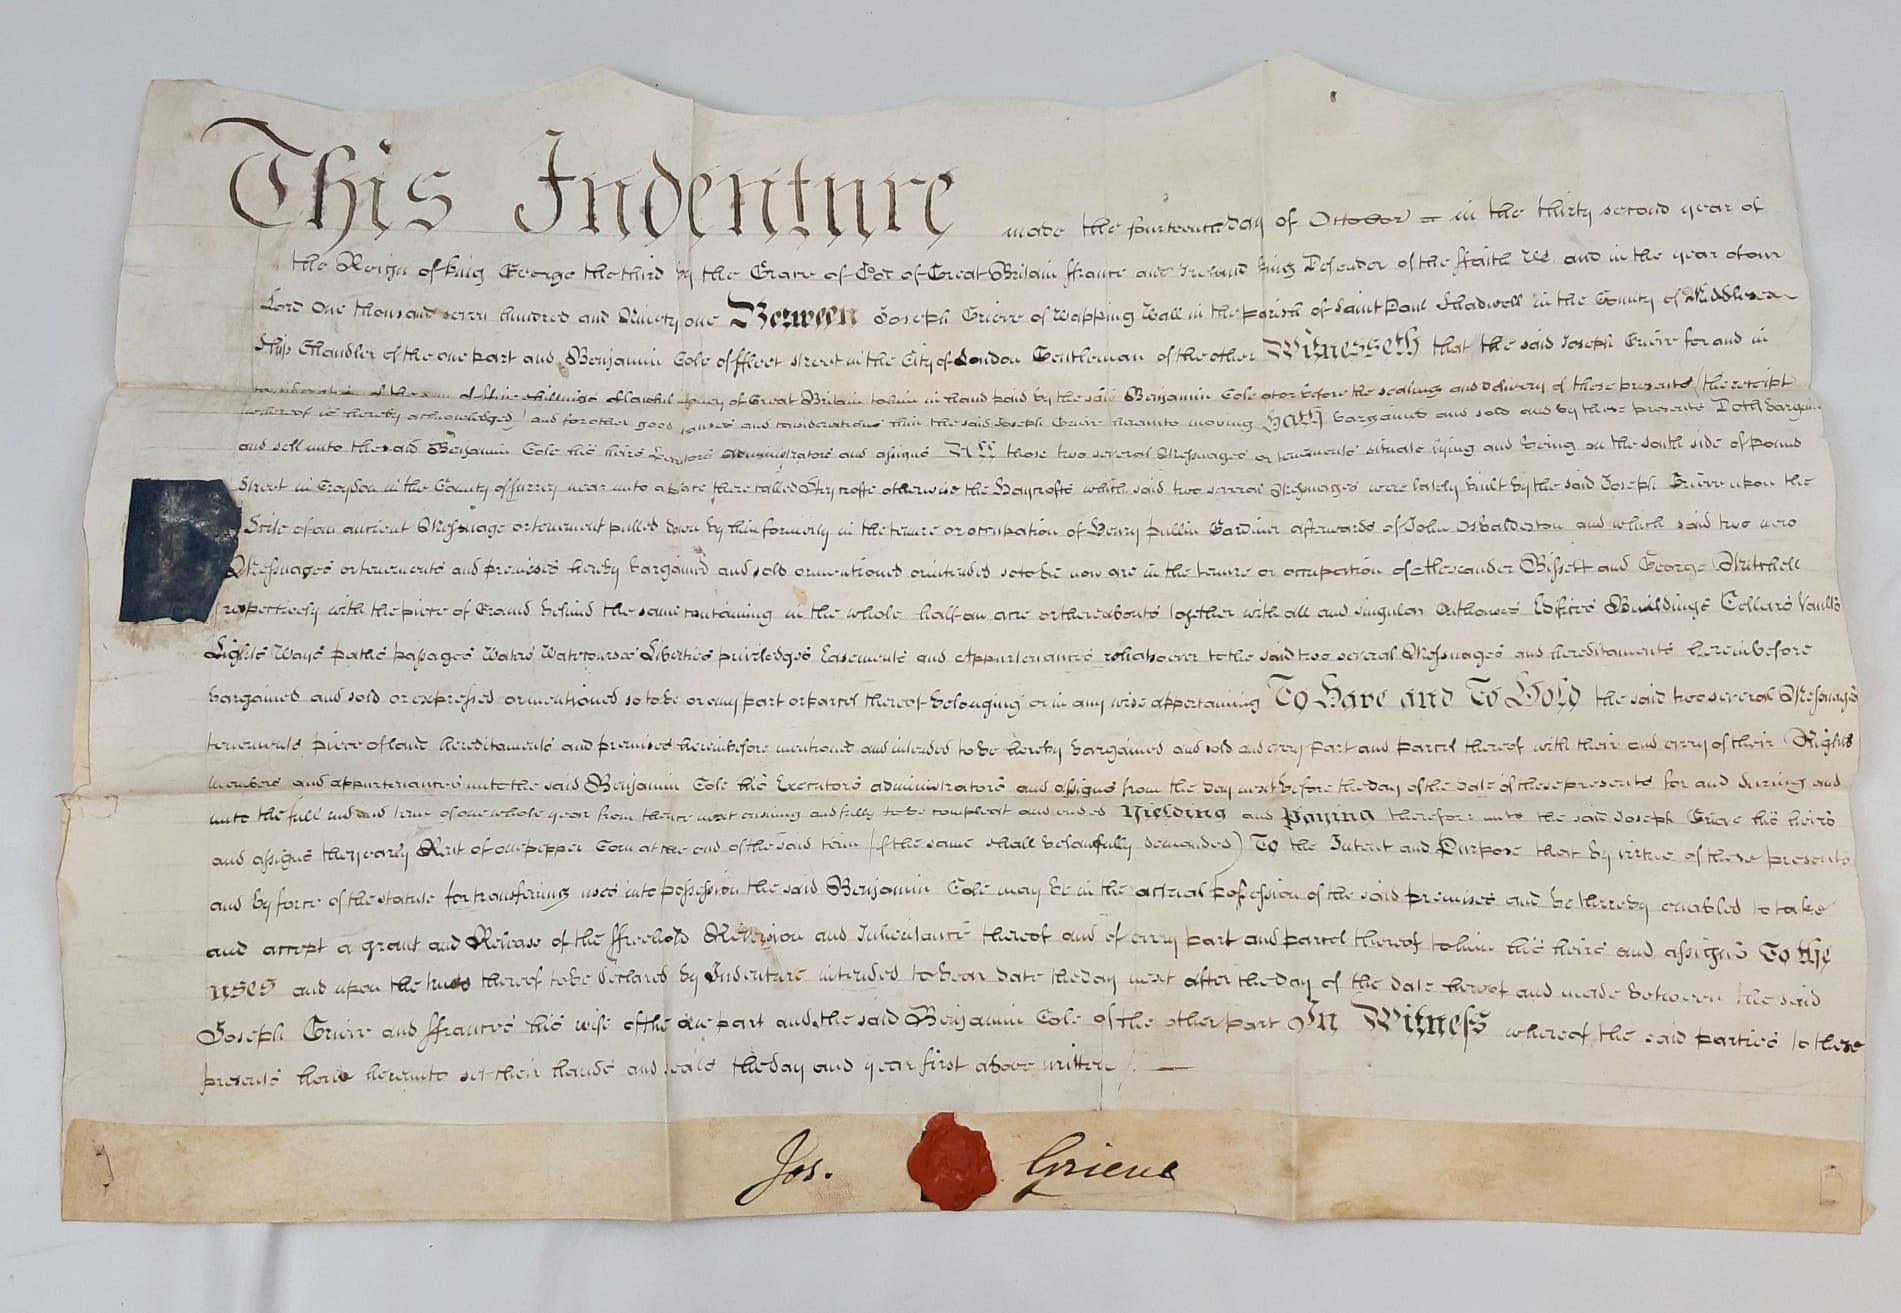 This Indenture made the fourteenth day of October in the thirty second year of
the Reign of King George the third by the Grace of God of Great Britain ffrance and Ireland King Defender of the ffaith &c. and in the year of our
Lord One thousand seven hundred and Ninety one Between Joseph Grieve of Wapping Wall in the parish of Saint Paul Shadwell in the County of Middlesex
Ship Chandler of the one part and Benjamin Cole of ffleet street in the City of London Gentleman of the other Witnesseth that the said Joseph Grieve for and in
consideration of the sum of ffive shillings of lawful money of Great Britain to him in hand paid by the said Benjamin Cole at or before the sealing and delivery of these presents (the receipt
whereof is hereby acknowledged) and for other good causes and considerations him the said Joseph Grieve hereunto moving Hath bargained and sold and by these presents Doth bargain
and sell unto the said Benjamin Cole his heirs Executors administrators and assigns All those two several Messuages or tenements situate lying and being on the south side of pound
Street in Croydon in the County of Surrey near unto a place there called otherwise the Haycrofts which said two several Messuages were lately built by the said Joseph Grieve upon the
Scite of an ancient Messuage or tenement pulled down by him formerly in the tenure or occupation of Henry pullin Gardiner afterwards of John Osbaldeston and which said two new
Messuages or tenements and premises hereby bargained and sold or mentioned or intended so to be now are in the tenure or occupation of Alexander Bissett and George Mitchell
respectively with the piece of Ground behind the same containing in the whole half an acre or thereabouts together with all and singular Outhouses Edifices Buildings Cellars Vaults
Lights Ways paths passages Waters Watercourses Liberties priviledges Easements and Appurtenances whatsoever to the said two several Messuages and hereditaments hereinbefore
bargained and sold or expressed or mentioned so to be or any part or parcel thereof belonging or in any wise appertaining To Have and To Hold the said two several Messuages
tenements piece of land hereditaments and premises hereinbefore mentioned and intended to be hereby bargained and sold and every part and parcel thereof with their and every of their Rights
members and appurtenances unto the said Benjamin Cole his Executors administrators and assigns from the day next before the day of the date of these presents for and during and
unto the full end and term of one whole year from thence next ensuing and fully to be compleat and ended Yielding and Paying therefore unto the said Joseph Grieve his heirs
and assigns the yearly Rent of one pepper Corn at the end of the said term (if the same shall be lawfully demanded) To the Intent and Purpose that by virtue of these presents
and by force of the statute for transferring uses into possession the said Benjamin Cole may be in the actual possession of the said premises and be thereby enabled to take
and accept a grant and Release of the ffreehold Reversion and Inheritance thereof and of every part and parcel thereof to him his heirs and assigns To the
uses and upon the trusts thereof to be declared by Indenture intended to bear date the day next after the day of the date hereof and made between the said
Joseph Grieve and ffrances his wife of the one part and the said Benjamin Cole of the other part In Witness whereof the said parties to these
presents have hereunto set their hands and seals the day and year first above written
Jos. Grieve